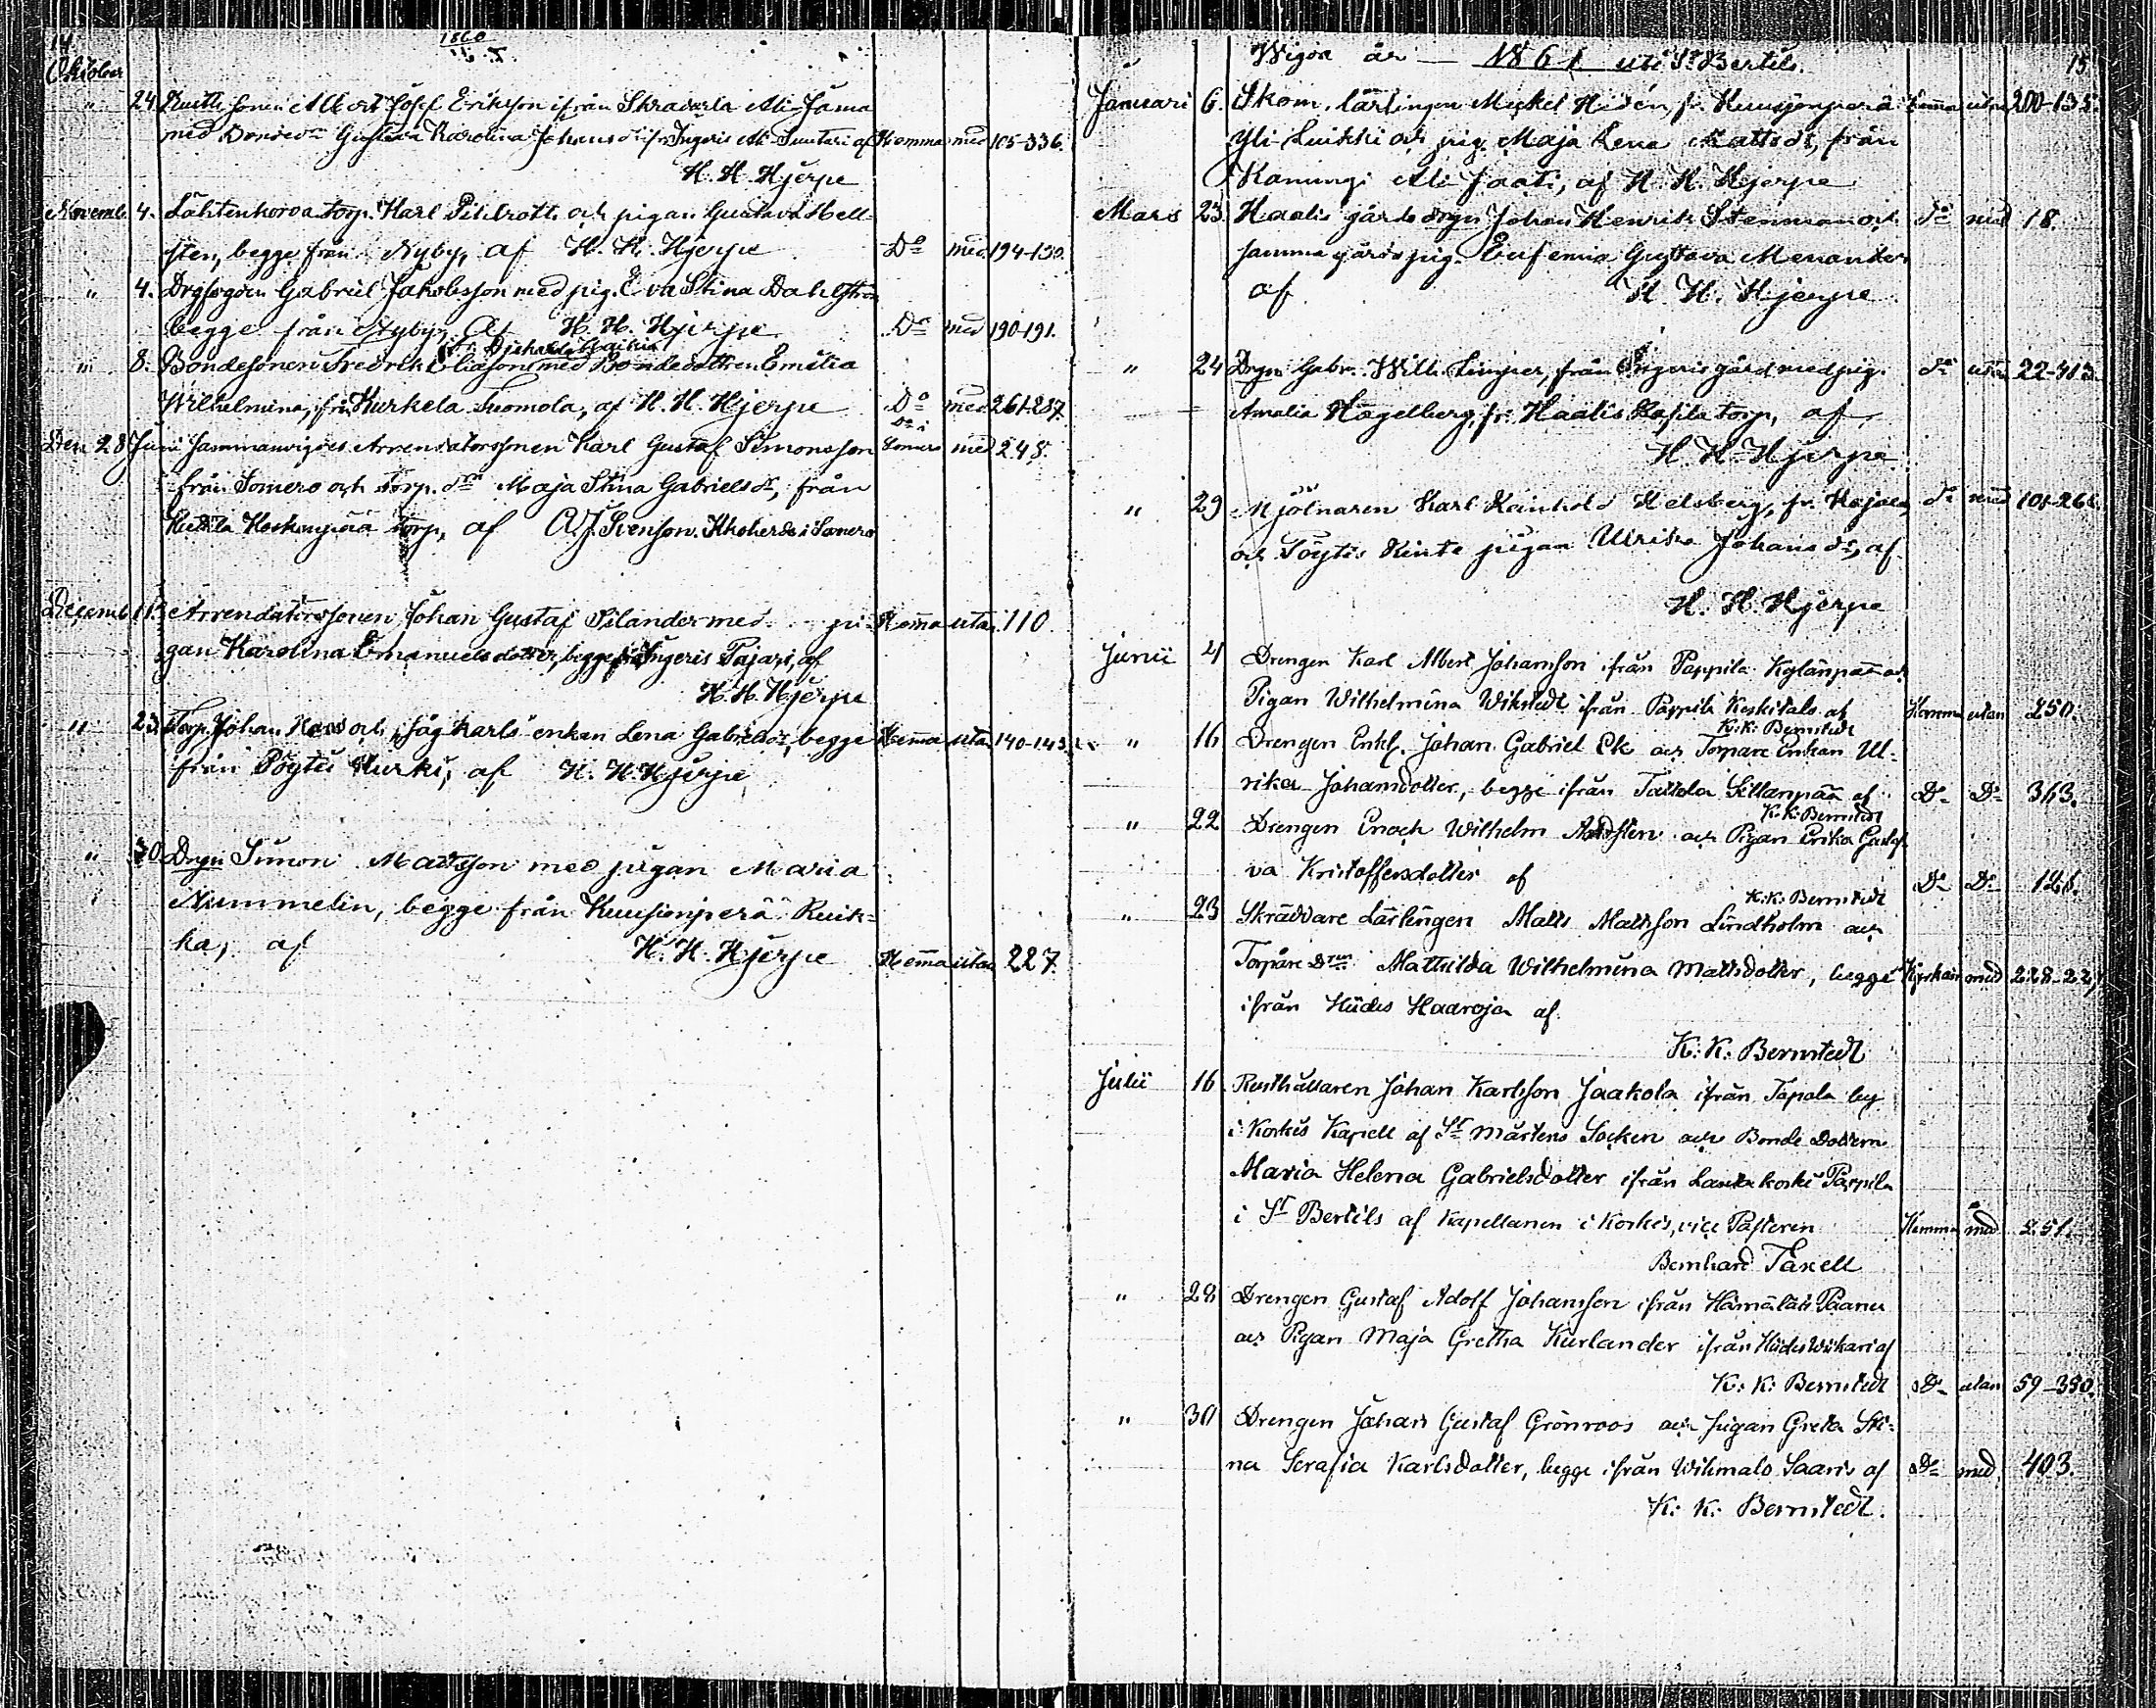 14
1860
Oktober
" 24. Rusth. sonen Albert Josef Eriksson ifrån Skravarla Ali Jäma
med Bondedn Gustava Karolina Johansdr. fr. Ingeris Ali Suutari af Hemma med 105-336.
H. H. Hjerpe
Novemb. 4. Lähtenkorva torp. Karl och pigan Gustava Hell-
sten, begge från Nyby, af H. H. Hjerpe Do med 194-190.
" 4. Drgsogden Gabriel Jakobsson med pig. Eva Stina Dahlström
begge från Nyby, af H. H. Hjerpe Do med 190-191.
" 8. Bondesonen Fredrik Eliasson med Bondedottren Emilia
Wilhelmina, från Kurkela Tuomola, af H. H. Hjerpe Do med 261-287.
Den 28 Juni sammanvigdes Arrendatorssonen Karl Gustaf Simonsson Somero med 248.
från Somero och Torp. drn Maja Stina Gabrielsdr, från
Kuttila Koskenpää torp, af A. J. Svenson. Kkoherde i Somero
Decemb 11. Arrendatorssonen Johan Gustaf Silander med pi- Hemma utan 110.
gan Karolina Emanuelsdotter, begge från Ingeris Pajari, af
H. H. Hjerpe
" 23. Torp. Johan och Såg Karls enkan Lena Gabrielsdr, begge Hemma utan 140-143.
från Pöytis Kurki, af H. H. Hjerpe
" 30. Drgn Simon Mattsson med pigan Maria
Nummelin, begge från Kuusjonperä Ruik-
ka, af H. H. Hjerpe Hemma utan 227.
Wigde år 1861 uti St Bertils. 15
Januari 6. Skom. lärlingen Mickel Hidén, fr. Kuusjonperä Hemma utan 200-135.
Yli Luikki och pig. Maja Lena Mattsdr, från
Kanungi Ali Jaati, af H. H. Hjerpe
Mars 23. Haalis gårds drgn Johan Henrik Stenman och do med 18.
samma gårds pig. Eufemia Gustava Menander
af H. H. Hjerpe
" 24 Drgn Gabr. Wilh. Limper, från Ingeris gård med pig. do utan 22-413.
Amalia Hägelberg, fr. Haalis torp, af
H. H. Hjerpe
" 29 Mjölnaren Karl Reinhold Helsberg, fr. Kojala, do med 101-261.
och Pöytis Kinte pigan Ulrika Johansdr, af
H. H. Hjerpe
Junii 4 Drengen Karl Albert Johansson ifrån Pappila Kylänpää och
Pigan Wilhelmina Wikstedt ifrån Pappila Keskitalo af Hemma utan 250.
K: K: Bernstedt
" 16 Drengen Enkl. Johan Gabriel Ek och Torpare Enkan Ul-
rika Johansdotter, begge ifrån Tattela Sillanpää af Do Do 363.
K: K: Bernstedt
" 22 Drengen Enoch Wilhelm och Pigan Erika Gusta-
va Kristoffersdotter af Do Do 121.
K: K: Bernstedt
" 23 Skräddare Lärlingen Matts Mattsson Lindholm och
Torpare Drn Mathilda Wilhelmina Mattsdotter, begge Kyrkan med 228-22
ifrån Hiides Haaroja af
K: K: Bernstedt
Julii 16 Rusthållaren Johan Karlsson Jaakola ifrån Tapala by
i Koskis Kapell af St Mårtens Socken och Bonde Dottern
Maria Helena Gabrielsdotter ifrån Lautakoski Pappila
i St Bertils af Kapellanen i Koskis, vice Pastoren Hemma med 251.
Bernhard Taxell
" 28 Drengen Gustaf Adolf Johansson ifrån Hämäläis Paanu
och Pigan Maja Gretha Kurlander ifrån Hiides Wiikari af
K: K: Bernstedt Do utan 59-380.
" 30 Drengen Johan Gustaf Grönroos och Pigan Greta Sti-
na Serafia Karlsdotter, begge ifrån Wihmalo Saaris af Do med 403.
K: K: Bernstedt.